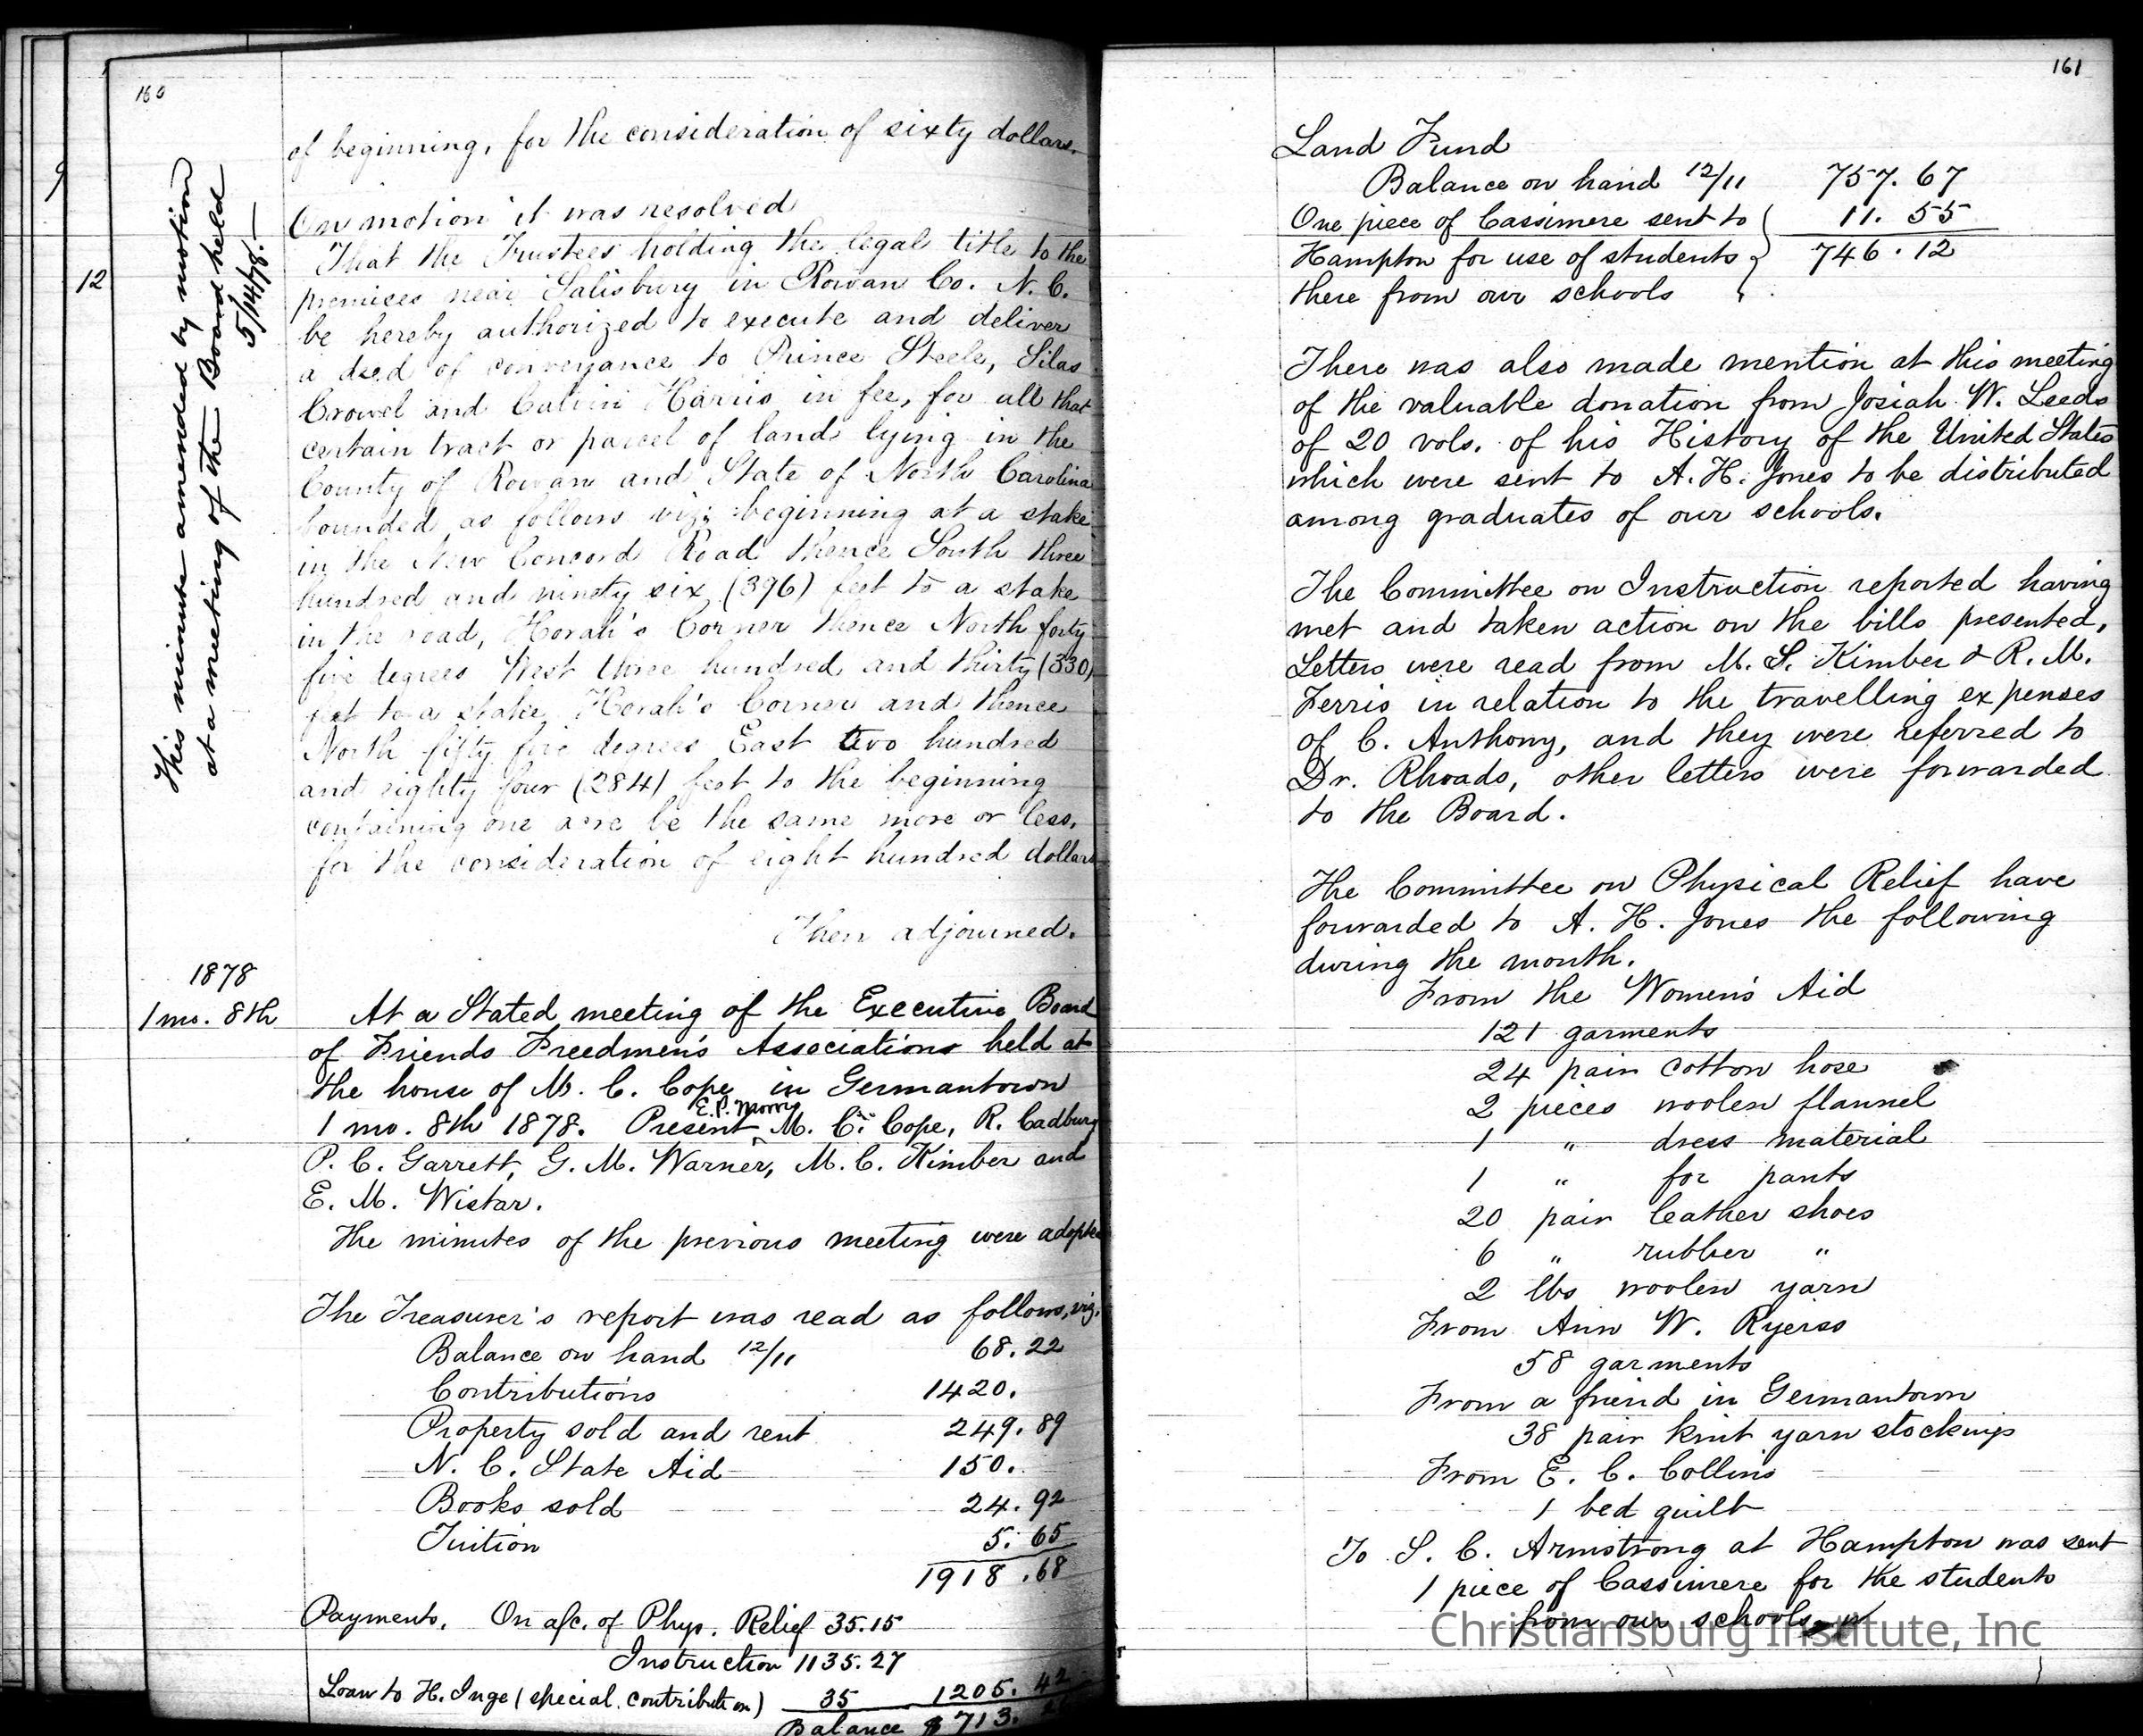 160
9
12
This minute amended by motion
at a meeting of the Board held
5/14/78.—
of beginning, for the consideration of sixty dollars.
On motion it was resolved
That the Trustees holding the legal title to the
premises near Salisbury in Rowan Co. N. C.
be hereby authorized to execute and deliver
a deed of conveyance to Prince Steele, Silas
Crowel and Calvin Harris in fee, for all that
certain tract or parcel of land lying in the
County of Rowan and State of North Carolina
bounded as follows viz: beginning at a stake
in the New Concord Road thence South three
hundred and ninety six (396) feet to a stake
in the road, Horah's Corner thence North forty
five degrees West three hundred and thirty (330)
feet to a stake Horah's Corner and thence
North fifty five degrees East two hundred
and eighty four (284) feet to the beginning
containing one acre be the same more or less,
for the consideration of eight hundred dollars
Then adjourned.
1878
1 mo. 8th
At a Stated meeting of the Executive Board
of Friends Freedmen's Associations held at
the house of M. C. Cope in Germantown
E. P. Morris
1 mo. 8th 1878. Present M. C. Cope, R. Cadbury
P. C. Garrett, G. M. Warner, M. C. Kimber and
E. M. Wistar.
The minutes of the previous meeting were adopted
The Treasurer's report was read as follows, viz.
Balance on hand 12/11 68.22
Contributions 1420.
Property sold and rent 249.89
N. C. State Aid 150.
Books sold 24.92
Tuition 5.65
1918.68
Payments. On a/c. of Phys. Relief 35.15
Instruction 1135.27
Loan to H. Inge (special contribution) 35 1205.42
Balance $713.
161
Land Fund
Balance on hand 12/11 757.67
One piece of Cassimere sent to 11.55
Hampton for use of students 746.12
there from our schools
There was also made mention at this meeting
of the valuable donation from Josiah W. Leeds
of 20 vols. of his History of the United States
which were sent to A. H. Jones to be distributed
among graduates of our schools.
The Committee on Instruction reported having
met and taken action on the bills presented,
Letters were read from M. S. Kimber & R. M.
Ferris in relation to the travelling expenses
of C. Anthony, and they were referred to
Dr. Rhoads, other letters were forwarded
to the Board.
The Committee on Physical Relief have
forwarded to A. H. Jones the following
during the month.
From the Women's Aid
121 garments
24 pair cotton hose
2 pieces woolen flannel
1 " dress material
1 " for pants
20 pair leather shoes
6 " rubber "
2 lbs woolen yarn
From Ann W. Ryerss
58 garments
From a friend in Germantown
38 pair knit yarn stockings
From E. C. Collins
1 bed quilt
To S. C. Armstrong at Hampton was sent
1 piece of Cassimere for the students
from our schools
Christiansburg Institute, Inc